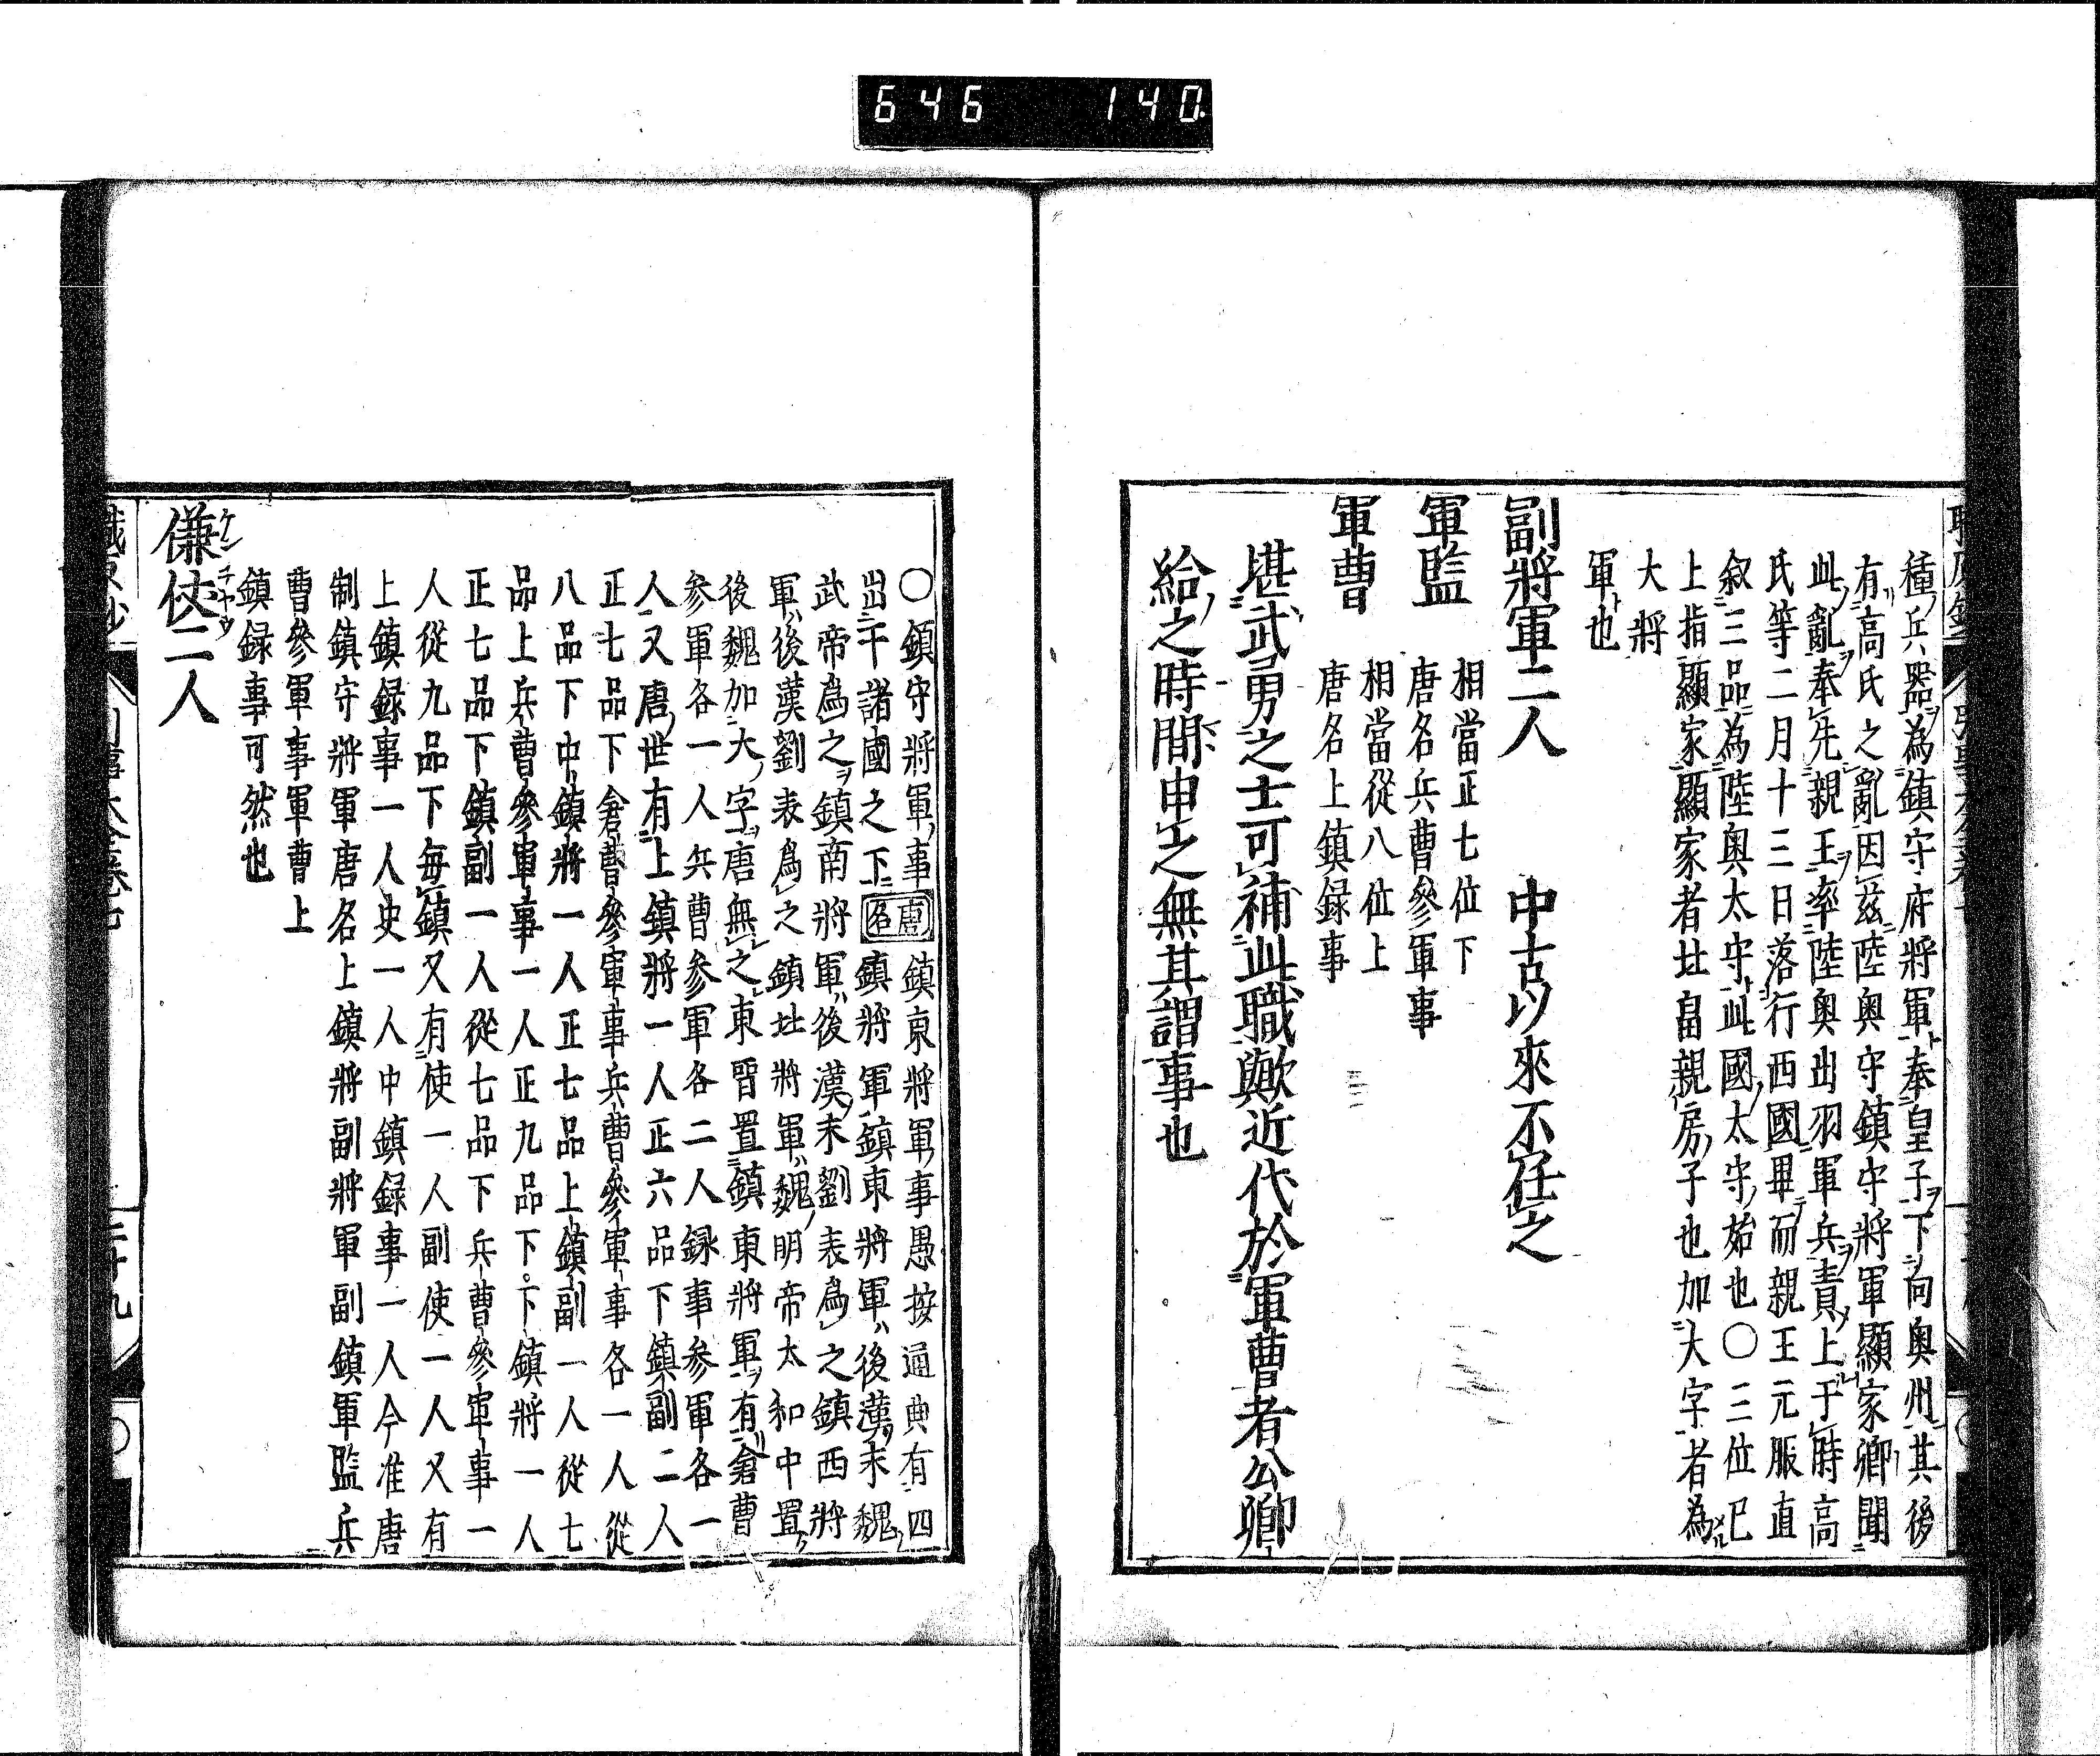 646 140
種兵器為鎮守府將軍奉皇子下向奥州其後
有高氏之亂因茲陸奥守鎮守將軍顯家卿聞
此亂奉先親王率陸奥出羽軍兵責上于時高
氏等二月十三日落行西國畢而親王元服直
叙三品為陸奥太守此國太守始也〇三位已
上指顯家顯家者北畠親房子也加大字者為
大將
軍也
副將軍二人 中古以來不任之
軍監 相當正七位下
唐名兵曹參軍事
軍曹 相當從八位上
唐名上鎮録事
堪武勇之士可補此職歟近代於軍曹者公卿
給之時間申之無其謂事也
〇鎮守將軍事唐名鎮京將軍事愚按通典有四
出于諸國之下鎮將軍鎮東將軍後漢末魏
武帝爲之鎮南將軍後漢末劉表爲之鎮西將
軍後漢劉表爲之鎮北將軍魏明帝太和中置
後魏加大字唐無之東晋置鎮東將軍有倉曹
参軍各一人兵曹参軍各二人録事参軍各一
人又唐世有上鎮將一人正六品下鎮副二人
正七品下倉曹參軍事兵曹參軍事各一人從
八品下中鎮將一人正七品上鎮副一人從七
品上兵曹參軍事一人正九品下下鎮將一人
正七品下鎮副一人從七品下兵曹參軍事一
人從九品下毎鎮又有使一人副使一人又有
上鎮録事一人史一人中鎮録事一人今准唐
制鎮守將軍唐名上鎮將副將軍副鎮軍監兵
曹參軍事軍曹上
鎮録事可然也
傔仗二人
ケン チヤウ